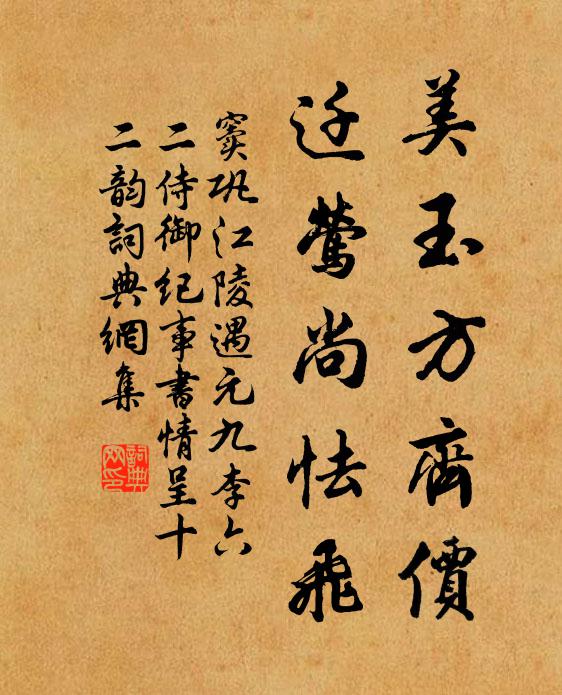 美玉方齊價
迁鶯尚怯飛
竇巩江陵遇元九李六
二侍御紀事書情呈十
二韵詞典網集
詞典網印